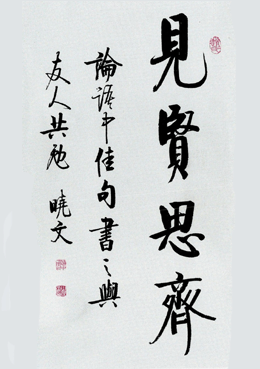 見賢思齊
論語中佳句書之與
友人共勉 曉文